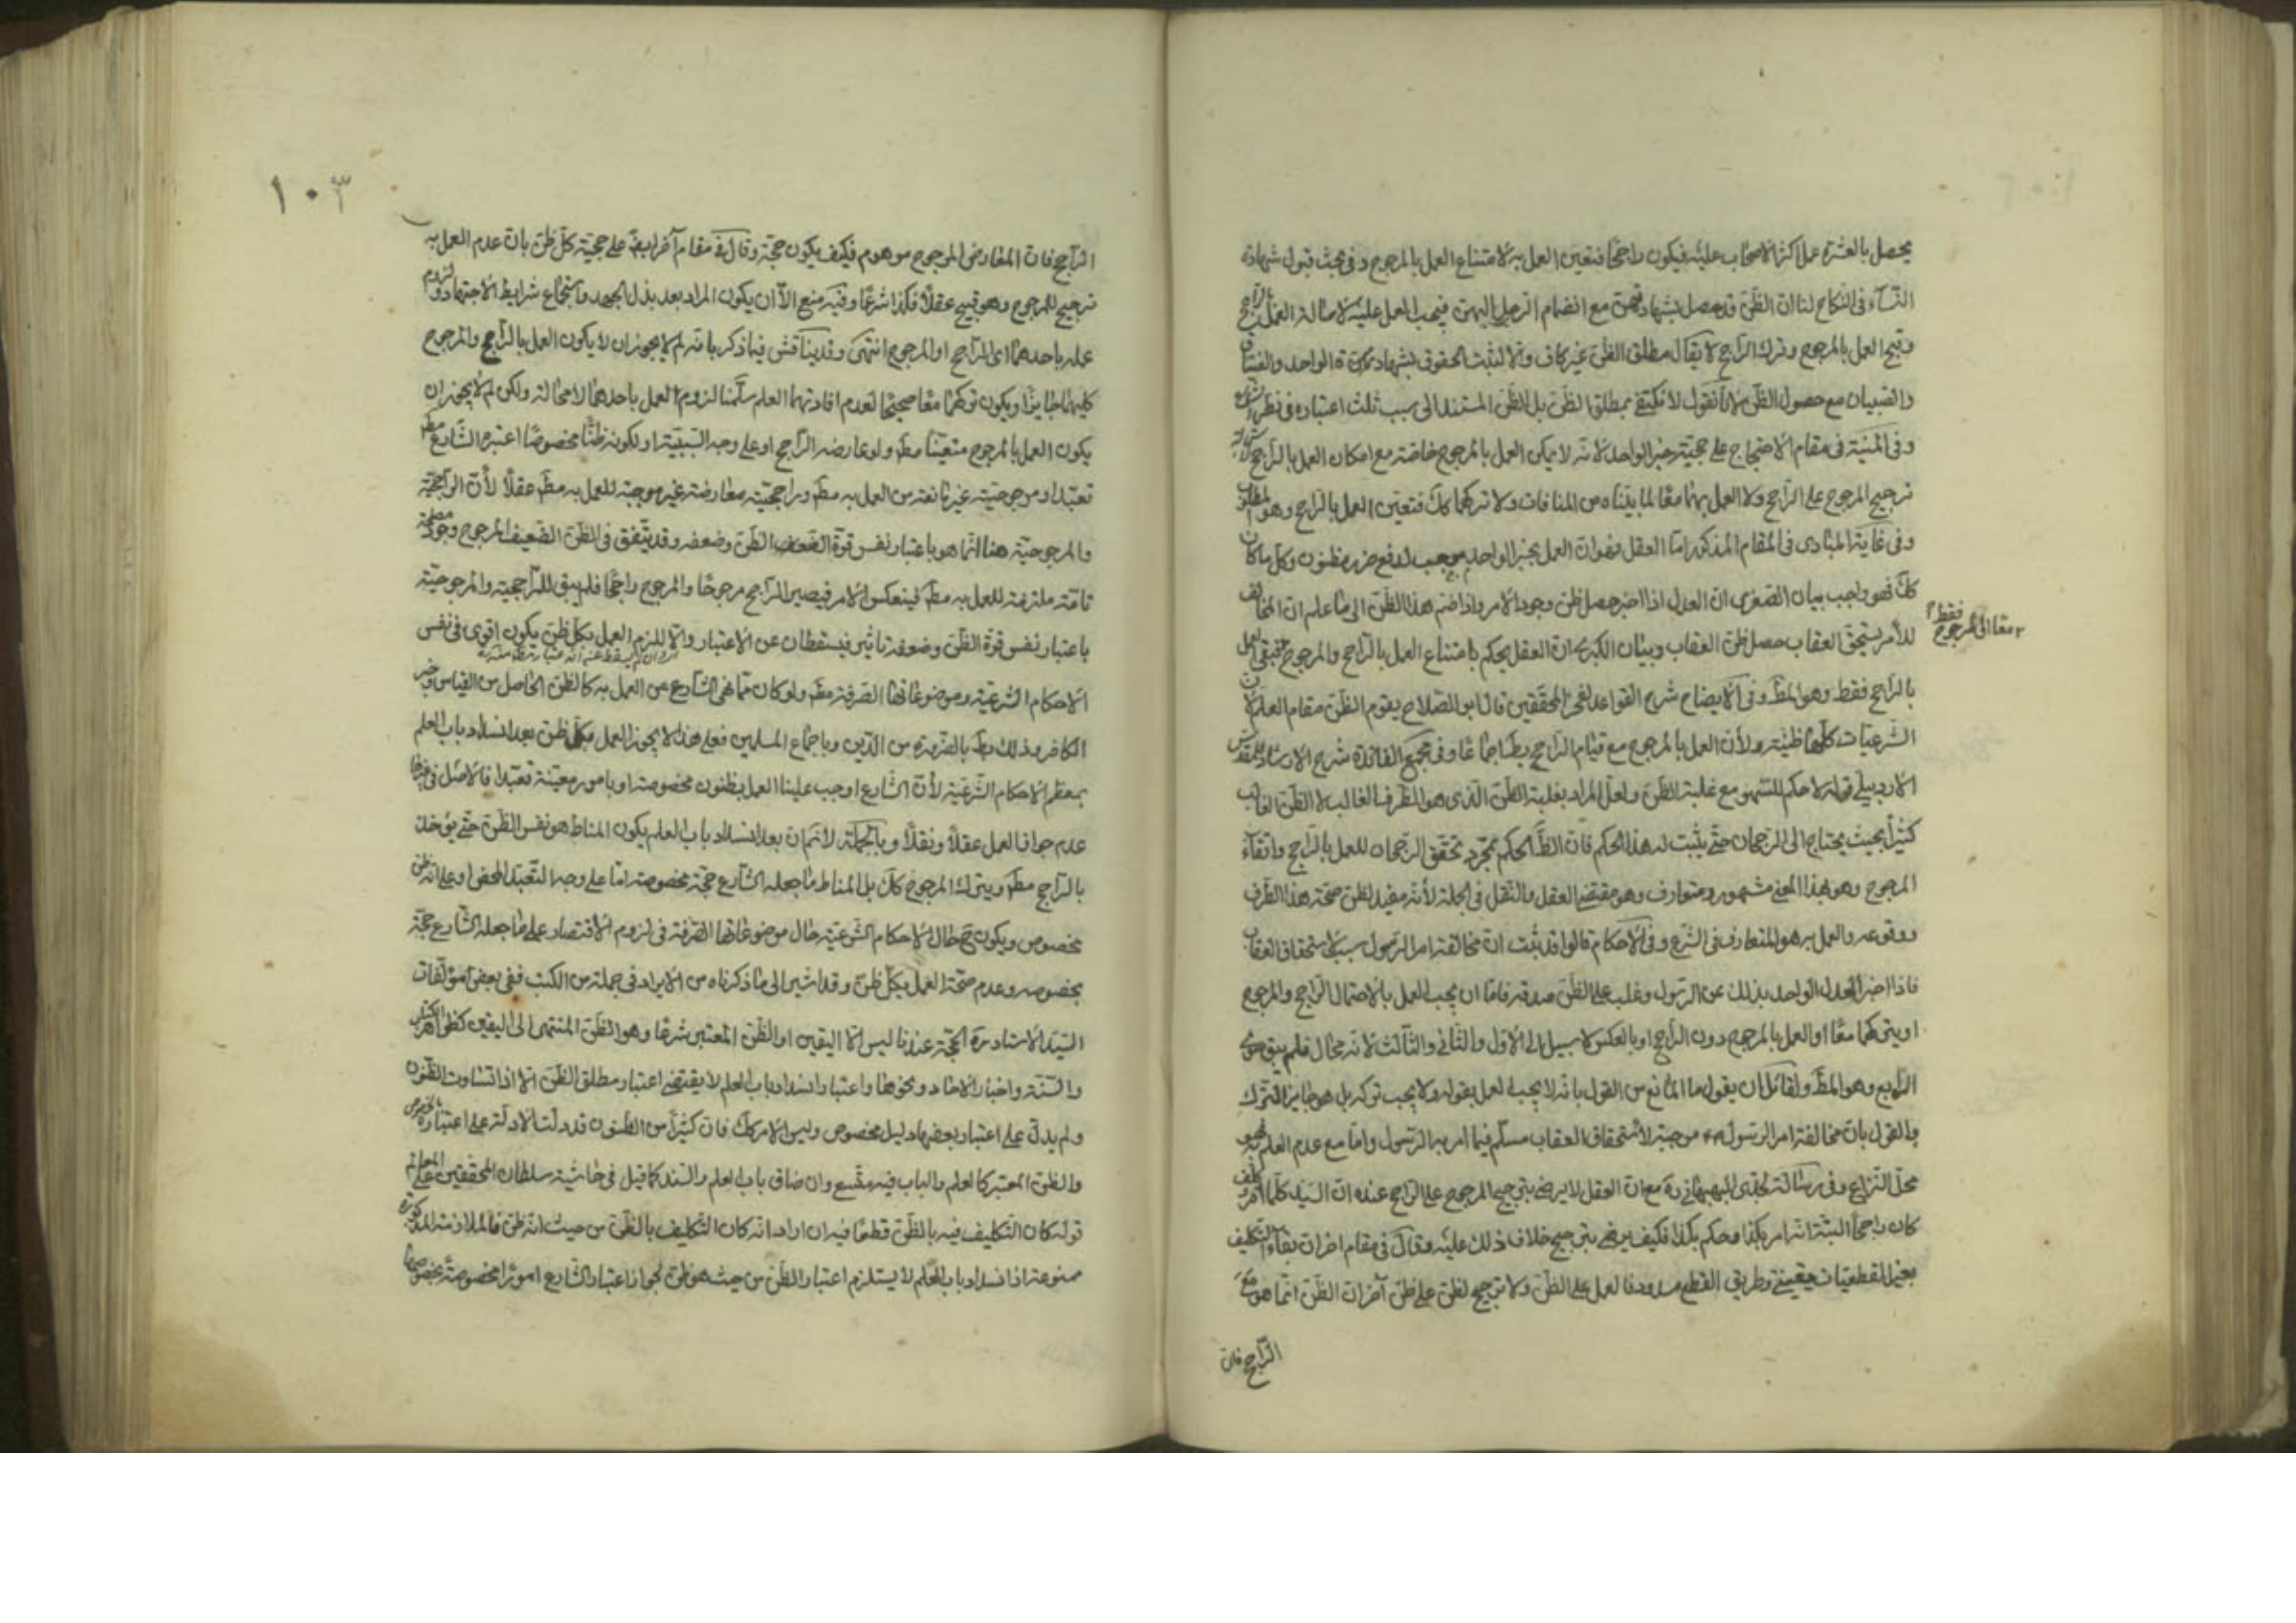 يحصل بالعشرة عملا كثر الاصحاب عليه فيكون راجحا فتعين العمل به لامتناع العمل بالمرجوح وفى بحث قبول شهادة
النسآء فى النكاح لنا ان الظن قد حصل بشهادتهن مع انضمام الرجل اليهن فيجب العمل عليه لاصالة العمل بالراجح
وقبح العمل بالمرجوح وترك الراجح لا يقال مطلق الظن غير كاف والا لثبت الحقوق بشهادة الواحد والفساق
والصبيان مع حصول الظن لانا نقول لا نكتفى بمطلق الظن بل الظن المستند الى سبب ثلث اعتباره فى نظر الشرع
وفى المنية فى مقام الاحتجاج على حجية خبر الواحد لانه لا يمكن العمل بالمرجوح خاصة مع امكان العمل بالراجح
ترجيح المرجوح على الراجح ولا العمل بهما معا لما بيناه من المنافات ولا تركهما كك فتعين العمل بالراجح وهو المطلوب
وفى غاية المبادى فى المقام المذكور اما العقل فهو ان العمل بخبر الواحد موجب لدفع ضرر مظنون وكل ما كان
كك فهو واجب بيان الصغرى ان العدل اذا اخبر حصل ظن وجود الامر واذا ضم هذا الظن الى ما علم ان المخالف
للامر يستحق العقاب حصل ظن العقاب وبيان الكبرى ان العقل يحكم بامتناع العمل بالراجح والمرجوح فبقى العمل
معا او المرجوح فقط
بالراجح فقط وهو المط وفى الايضاح شرح القواعد لفخر المحققين قال ابو الصلاح يقوم الظن مقام العلم لان
الشرعيات كلها ظنية ولأن العمل بالمرجوح مع قيام الراجح بط اجماعا وفى مجمع الفائدة شرح الارشاد للمقدس
الاردبيلى قوله لا حكم للسهو مع غلبة الظن ولعل المراد بغلبة الظن الظن الذى هو الطرف الغالب لا الظن الغالب
كثيرا بحيث يحتاج الى الرجحان حتى يثبت له هذا الحكم فان الظ الحكم بمجرد تحقق الرجحان للعمل بالراجح وانتفاء
المرجوح وهو بهذا المعنى مشهور ومتعارف وهو مقتضى العقل والنقل فى الجملة لأنه مفيد لظن صحة هذا الطرف
ووقوعه والعمل به هو المتعارف فى الشرع وفى الاحكام قالوا قد ثبت ان مخالفة امر الرسول سبب لاستحقاق العقاب
فاذا اخبر العدل الواحد بذلك عن الرسول وغلب على الظن صدقه فاما ان يجب العمل بالاحتمال الراجح والمرجوح
او يتركهما معا او العمل بالمرجوح دون الراجح او بالعكس لا سبيل الى الاول والثانى والثالث لانه محال فلم يبق سوى
الرابع وهو المط ولقائل ان يقول ما المانع من القول بانه لا يجب العمل بقوله ولا يجب تركه بل هو جايز الترك
والقول بان مخالفة امر الرسول موجبة لاستحقاق العقاب مسلم فيما امر به الرسول واما مع عدم العلم به فهو
محل النزاع وفى رسالة لجدى البهبهانى ره مع ان العقل لا يرضى بترجيح المرجوح على الراجح عنده ان السيد كلما
كان راجحا البتة انه امر بكذا وحكم بكذا فكيف يرضى بترجيح خلاف ذلك عليه وقال فى مقام اخر ان بقاء التكليف
بغير القطعيات يقينى وطريق القطع مسدود فالعمل على الظن ولا ترجيح لظن على ظن آخر ان الظن انما هو مع
الراجح فان
١٠٣
الراجح فان المعارض المرجوح موهوم فكيف يكون حجة وقال فى مقام آخر ايض على حجية كل ظن بان عدم العمل به
ترجيح للمرجوح وهو قبيح عقلا فكذا شرعا وفيه منع الا ان يكون المراد بعد بذل الجهد واستجماع شرايط الاجتهاد ولزوم
عمله باحدهما اى الراجح او المرجوح انتهى وقد يناقش فيما ذكر بانه لم لا يجوز ان لا يكون العمل بالراجح والمرجوح
كليهما جايزا ويكون تركهما معا صحيحا لعدم افادتهما العلم سلمنا لزوم العمل باحدهما لا محالة ولكن لم لا يجوز ان
يكون العمل بالمرجوح متعينا مط ولو عارضه الراجح او على وجه السببية او لكونه ظنا مخصوصا اعتبره الشارع مط
تعبدا ومرجوحيته غير مانعة من العمل به مط وراجحية معارضه غير موجبة للعمل به مط عقلا لأن الراجحية
والمرجوحية هنا انما هو باعتبار نفس قوة الظن وضعفه وقد يتفق فى الظن الضعيف المرجوح وجود مصلحة
تامة ملزمة للعمل به مط فينعكس الامر فيصير الراجح مرجوحا والمرجوح راجحا فلم يبق للراجحية والمرجوحية
باعتبار نفس قوة الظن وضعفه تأثير فيسقطان عن الاعتبار والا للزم العمل بكل ظن يكون اقوى فى نفس
الاحكام الشرعية وموضوعاتها الصرفة مط ولو كان مما نهى الشارع عن العمل به كالظن الحاصل من القياس وخبر
الكافر وذلك بط بالضرورة من الدين وباجماع المسلمين فعلى هذا لا يجوز العمل بكل ظن بعد انسداد باب العلم
بمعظم الاحكام الشرعية لأن الشارع اوجب علينا العمل بظنون مخصوصة او بامور معينة تعبدا فالاصل فى غيرها
عدم جواز العمل عقلا ونقلا وبالجملة لانم ان بعد انسداد باب العلم يكون المناط هو نفس الظن حتى يؤخذ
بالراجح مط ويترك المرجوح كك بل المناط ما جعله الشارع حجة مخصوصة اما على وجه التعبد المحض او على انه ظن
مخصوص ويكون ح حال الاحكام الشرعية حال موضوعاتها الصرفة فى لزوم الاقتصار على ما جعله الشارع حجة
بخصوصه وعدم صحة العمل بكل ظن وقد اشير الى ما ذكرناه من الايراد فى جملة من الكتب ففى بعض مؤلفات
السيد الاستاد ره الحجة عندنا ليس الا اليقين او الظن المعتبر شرعا وهو الظن المنتهى الى اليقين كظواهر الكتاب
والسنة واخبار الاحاد ونحوها واعتبار انسداد باب العلم لا يقتضى اعتبار مطلق الظن الا اذا تساوت الظنون
ولم يدل على اعتبار بعضها دليل مخصوص وليس الامر كك فان كثيرا من الظنون قد دلت الادلة على اعتباره بالخصوص
والظن المعتبر كالعلم والباب فيه متسع وان ضاق باب العلم وانسد كما قيل فى حاشية سلطان المحققين على المعالم
قوله كان التكليف فيه بالظن قطعا فيه ان اراد انه كان التكليف بالظن من حيث انه ظن فالملازمة المذكورة
ممنوعة اذ انسداد باب العلم لا يستلزم اعتبار الظن من حيث هو ظن لجواز اعتبار الشارع امورا مخصوصة بخصوصها